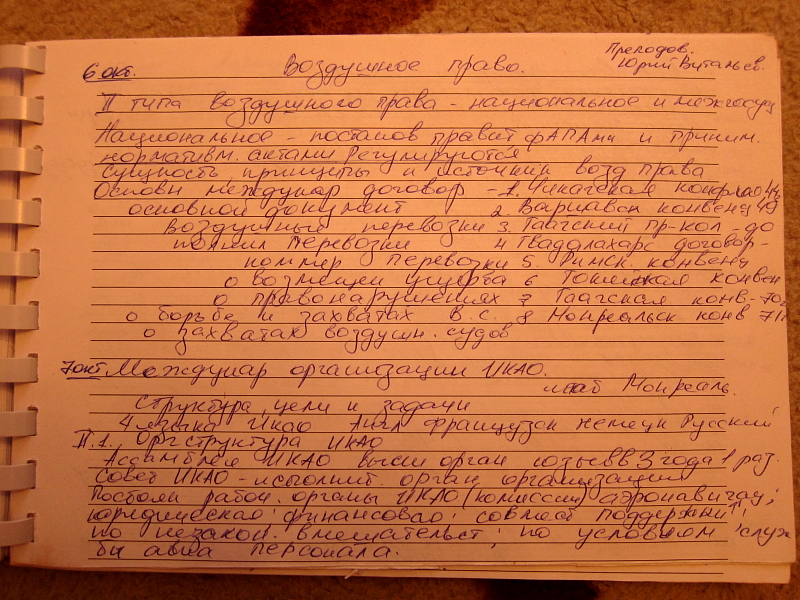 6 окт. Воздушное право. Преподов. Юрий Витальев.
II типа воздушного права - национальное и межгосуд
Национальное - постанов правит ФАПАми и приним.
нормативм. актами Регулируются
Сущность принципы и источник возд права
Основн междунар договор - 1. Чикагская конф 44
основной документ 2. Варшавск конвенц 49
Воздушные перевозки 3. Гаагский пр-кол - до
полнил Перевозки 4 Гвадалахарс договор -
коммер перевозки 5. Римск. конвенц
о возмещен ущерба 6 Токийская конвен
о правонарушениях 7 Гаагская конв - 70г
о борьбе и захватах в.с. 8 Монреальск конв 71г
о захватах воздушн. судов
7 окт Междунар организации ИКАО.
штаб Монреаль.
Структура, цели и задачи
4 языка Икао Англ Французск немецк Русский
II.1. Оргструктура ИКАО
Ассамблея ИКАО высш орган созыв в 3 года 1 раз.
Совет ИКАО - исполнит. орган организации
Постоян рабоч. органы ИКАО (комиссии) аэронавигац;
юридическая; финансовая; совмест поддержки;
по незакон. вмешательст; по условиям служ
бы авиа персонала.